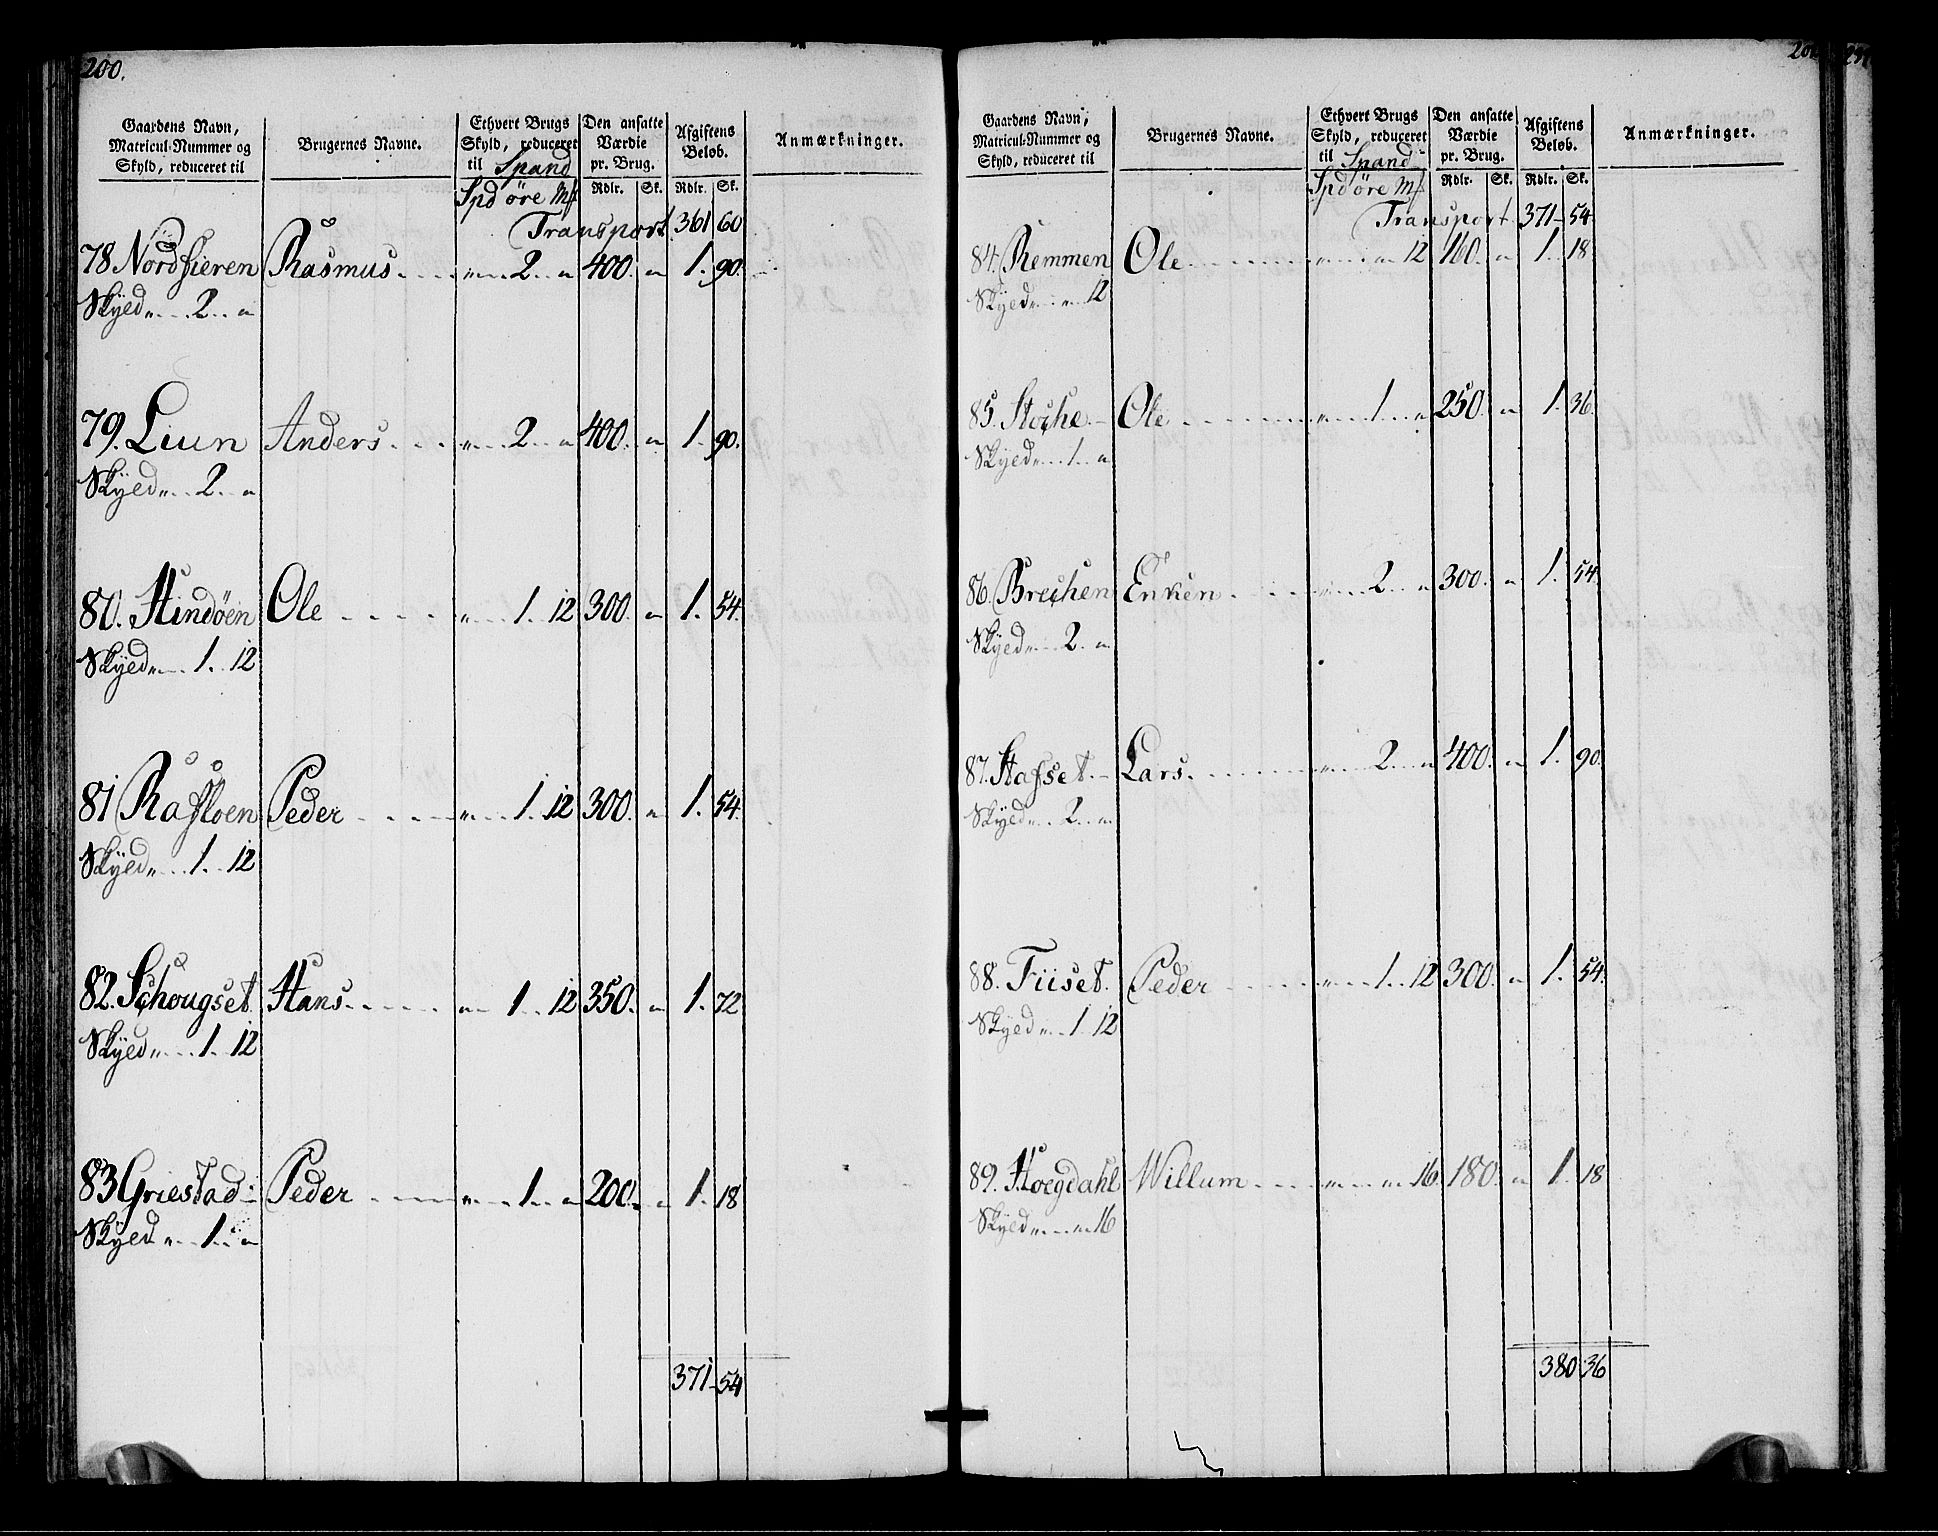 200.
Gaardens Navn, Matricul-Nummer og Skyld, reduceret til
Brugernes Navne.
Ethvert Brugs Skyld, reduceret til Spand
Den ansatte Værdie pr. Brug.
Afgiftens Beløb.
Anmærkninger.
Spd øre Mk Rdlr. Sk. Rdlr. Sk.
Transport 361 60
78 Nordfieren Rasmus „ 2 „ 400. „ 1. 90.
Skyld „ 2 „
79. Liun Anders „ 2 „ 400. „ 1. 90.
Skyld „ 2 „
80. Stindöen Ole „ 1 12 300. „ 1. 54.
Skyld „ 1. 12
81 Rasloen Peder „ 1. 12 300. „ 1. 54.
Skyld „ 1. 12
82. Schougset Hans „ 1 12 350. „ 1. 72
Skyld „ 1. 12
83 Griestad Peder „ 1 „ 200. „ 1. 18
Skyld „ 1 „
371 54
Gaardens Navn, Matricul-Nummer og Skyld, reduceret til
Brugernes Navne.
Ethvert Brugs Skyld, reduceret til Spand
Den ansatte Værdie pr. Brug.
Afgiftens Beløb.
Anmærkninger.
Spd øre Mk Rdlr. Sk. Rdlr. Sk.
Transport 371 54
84. Remmen Ole „ „ 12 160. „ 1. 18
Skyld „ „ 12
85. Stoche Ole „ 1 „ 250. „ 1. 36.
Skyld „ 1 „
86. Brechen Enken „ 2 „ 300. „ 1. 54.
Skyld „ 2 „
87. Stafset Lars „ 2 „ 400. „ 1. 90.
Skyld „ 2 „
88. Fiiset. Peder „ 1 12 300. „ 1. 54.
Skyld „ 1 12
89. Hoegdahl Willum „ „ 16 180. „ 1. 18
Skyld „ „ 16
380 36